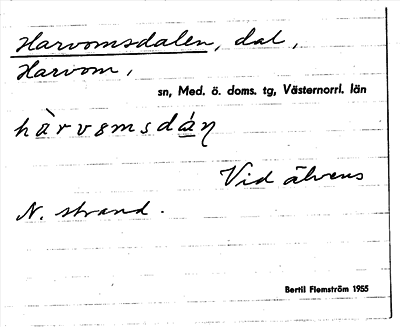 Harvomsdalen, dal,
Harvom,
sn, Med. ö. doms. tg, Västernorrl. län
Vid älvens
N. strand.
Bertil Flemström 1955